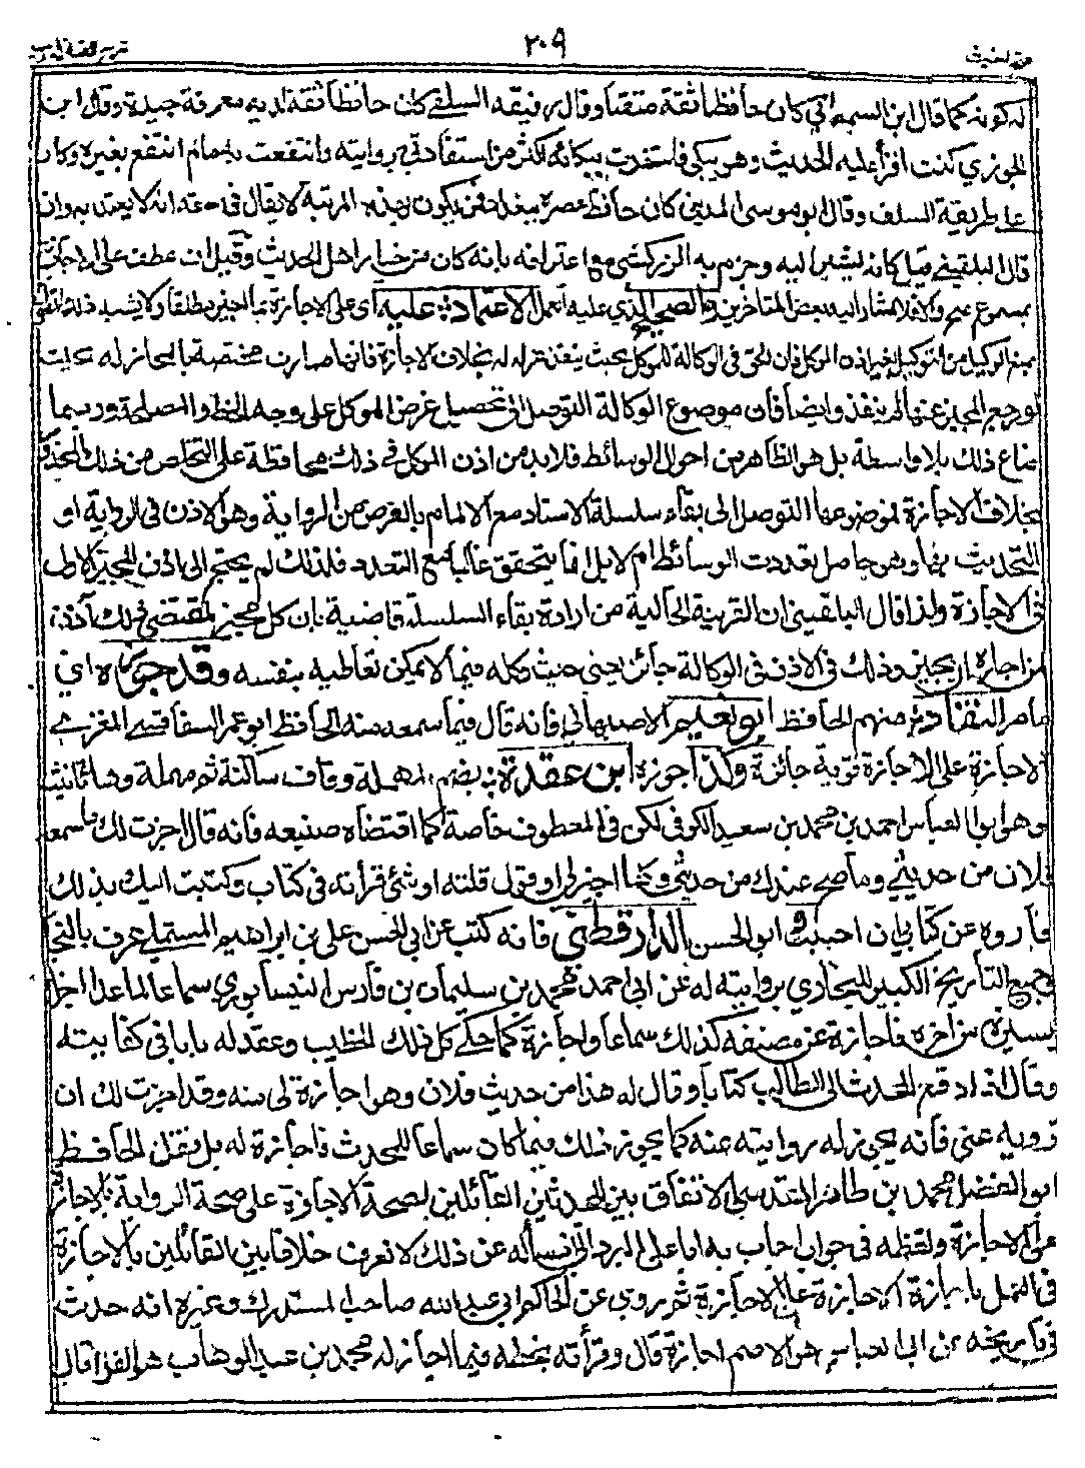 ٢٠٩
له كونه كما قال ابن السمعاني كان حافظا ثقة متقنا وقال رفيقه السلفي كان حافظا ثقة لديه معرفة جيدة وقال ابن
الجوزي كنت اقرأ عليه الحديث وهو يبكي فاستفدت ببكائه اكثر من استفادتي بروايته وانتفعت به مالم انتفع بغيره وكان
على طريقة السلف وقال ابو موسى المديني كان حافظ عصره ببغداد فمن يكون بهذه المرتبة لا يقال في حقه انه لا يعتد به وان
قال البلقيني قيل كانه يشير اليه وجزم به الزركشي مع اعترافه بانه كان من خيار اهل الحديث وقيل ان عطف على الاجازة
بمسموع صح والا فلا اشار اليه بعض المتأخرين والصحيح الذي عليه العمل الاعتماد عليه اي على الاجازة بما اجيز مطلقا ولا يشبه ذلك
منع الوكيل من التوكيل بغير اذن الموكل فان الحق في الوكالة للموكل بحيث ينفذ عزله له بخلاف الاجازة فانها صارت مختصة بالمجاز له بحيث
لو رجع المجيز عنها لم ينفذ وايضا فأن موضوع الوكالة التوصل الى تحصيل غرض الموكل على وجه الحظ والمصلحة وربما
ضاع ذلك بلا واسطة بل هو الظاهر من احوال الوسائط فلا بد من اذن الموكل في ذلك محافظة على التخلص من ذلك
بخلاف الاجازة فموضوعها التوصل الى بقاء سلسلة الاسناد مع الالمام بالغرض من الرواية وهو الاذن في الرواية او
التحديث بها وهو حاصل تعددت الوسائط ام لا بل انما يتحقق غالبا مع التعدد فلذلك لم يحتج الى اذن المجيز الاول
في الاجازة ولذا قال البلقيني ان القرينة الحالية من ارادة بقاء السلسلة قاضية بان كل مجيز بمقتضى ذلك آذن
من اجازه ان يجيز وذلك في الاذن في الوكالة جائز يعني حيث وكله فيما لا يمكن تعاطيه بنفسه وقد جوزه اي
ماهر النقاد منهم الحافظ ابو نعيم الاصبهاني فانه قال فيما سمعه منه الحافظ ابو عمر السفاقسي المغربي
الاجازة على الاجازة قوية جائزة وكذا جوزه ابن عقدة بضم المهملة وقاف ساكنة ثم مهملة وهاء تأنيث
وهو ابو العباس احمد بن محمد بن سعيد الكوفي لكن في المعطوف خاصة كما اقتضاه صنيعه فانه قال اجزت لك ما سمعه
فلان من حديثي وما صح عندك من حديثي وكلما اجيز لي او قول قلته او شئ قرأته في كتاب وكتبت اليك بذلك
فاروه عن كتابي ان احببت و ابو الحسن الدارقطني فانه كتب عن ابي الحسن علي بن ابراهيم المستملي عرف بالنجاد
جميع التأريخ الكبير للبخاري بروايته له عن ابي احمد محمد بن سليمان بن فارس النيسابوري سماعا لما عدا اجزاء
يسيرة من آخره فاجازة عن مصنفه كذلك سماعا واجازة كما حكى كل ذلك الخطيب وعقد له بابا في كفايته
وقال اذا دفع المحدث الى الطالب كتابا وقال له هذا من حديث فلان وهو اجازة لي منه وقد اجزت لك ان
ترويه عني فانه يجوز له روايته عنه كما يجوز ذلك فيما كان سماعا للمحدث فاجازة له بل نقل الحافظ
ابو الفضل محمد بن طاهر المقدسي الاتفاق بين المحدثين القائلين بصحة الاجازة على صحة الرواية بالاجازة
على الاجازة ولفظه في جواب اجاب به ابا علي البرداني سأله عن ذلك لا نعرف خلافا بين القائلين بالاجازة
في العمل باجازة الاجازة على الاجازة ثم روى عن الحاكم ابي عبد الله صاحب المستدرك وغيره انه حدث
في تاريخه عن ابي العباس هو الاصم اجازة قال وقرأته بخطه فيما اجاز له محمد بن عبد الوهاب هو الفراء قال